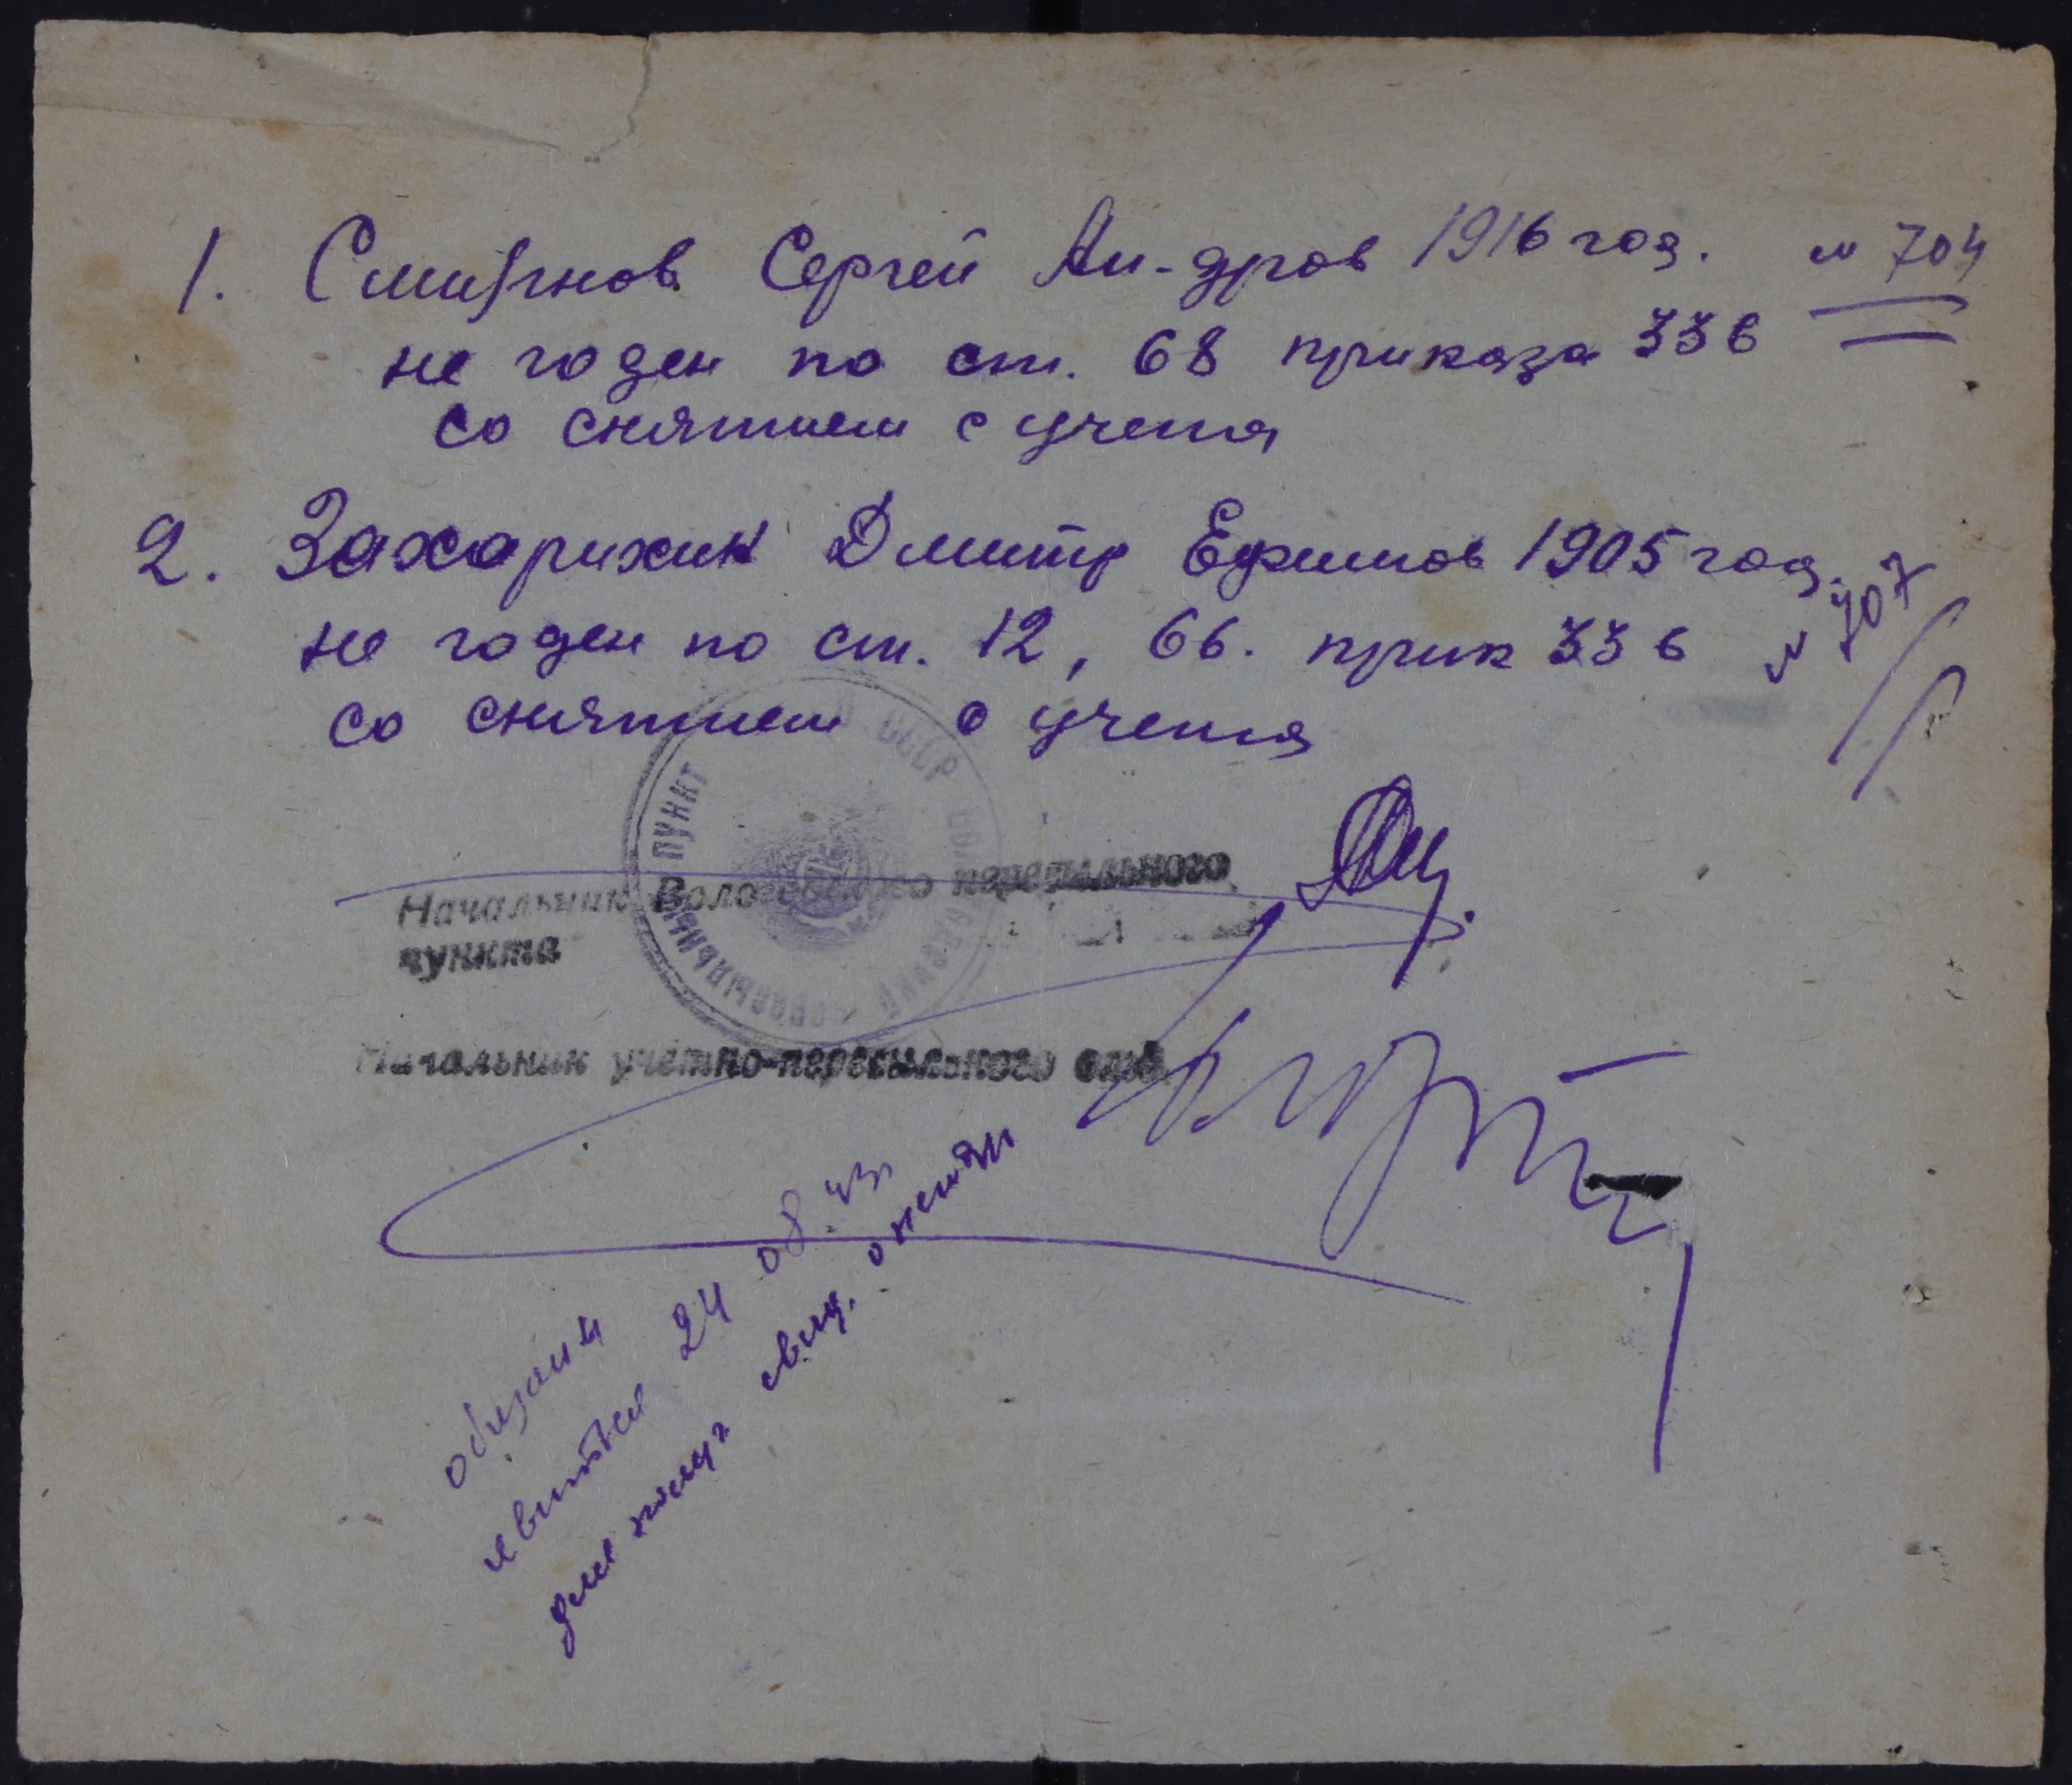 1. Смирнов Сергей Ан-дров 1916 год. № 704
не годен по ст. 68 приказа 336
со снятием с учета
2. Захарихин Дмитр Ефимов 1905 год. № 707
не годен по ст. 12, 66. прик 336
со снятием с учета
СССР
пересыльный пункт
Начальник Вологодского пересыльного
пункта
Начальник учетно-пересыльного отд.
обязаны
явится 24 08.43г
для получ свид. о